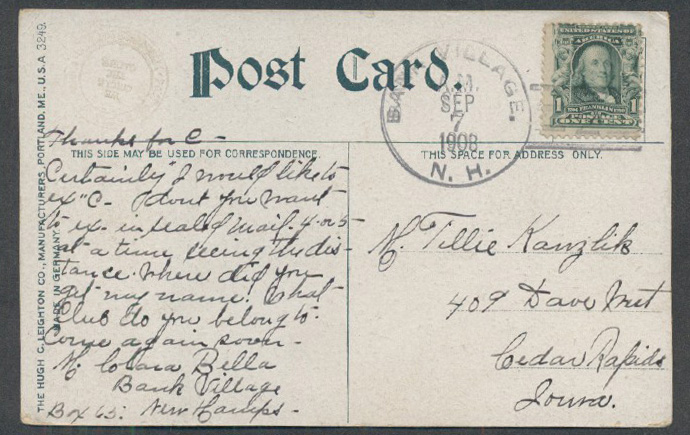 Post Card.
BANK VILLAGE.
A.M.
SEP
7
1908
N. H.
UNITED STATES OF
AMERICA
1 FRANKLIN 1
POSTAGE
ONE CENT
THE HUGH C. LEIGHTON CO., MANUFACTURERS, PORTLAND, ME., U.S.A. 3249.
MADE IN GERMANY.
THIS SIDE MAY BE USED FOR CORRESPONDENCE.
THIS SPACE FOR ADDRESS ONLY.
Thanks for C -
Certainly I would like to
ex "C. - I dont you want
to ex. in sealed mail. 4 or 5
at a time seeing the dis-
tance. Where did you
get my name. What
Club do you belong to.
Come again soon -
M. Clara Bella
Bank Village
Box 65: New Hamps -
M. Tillie Kanzlik
409 Dave
Cedar Rapids
Iowa.